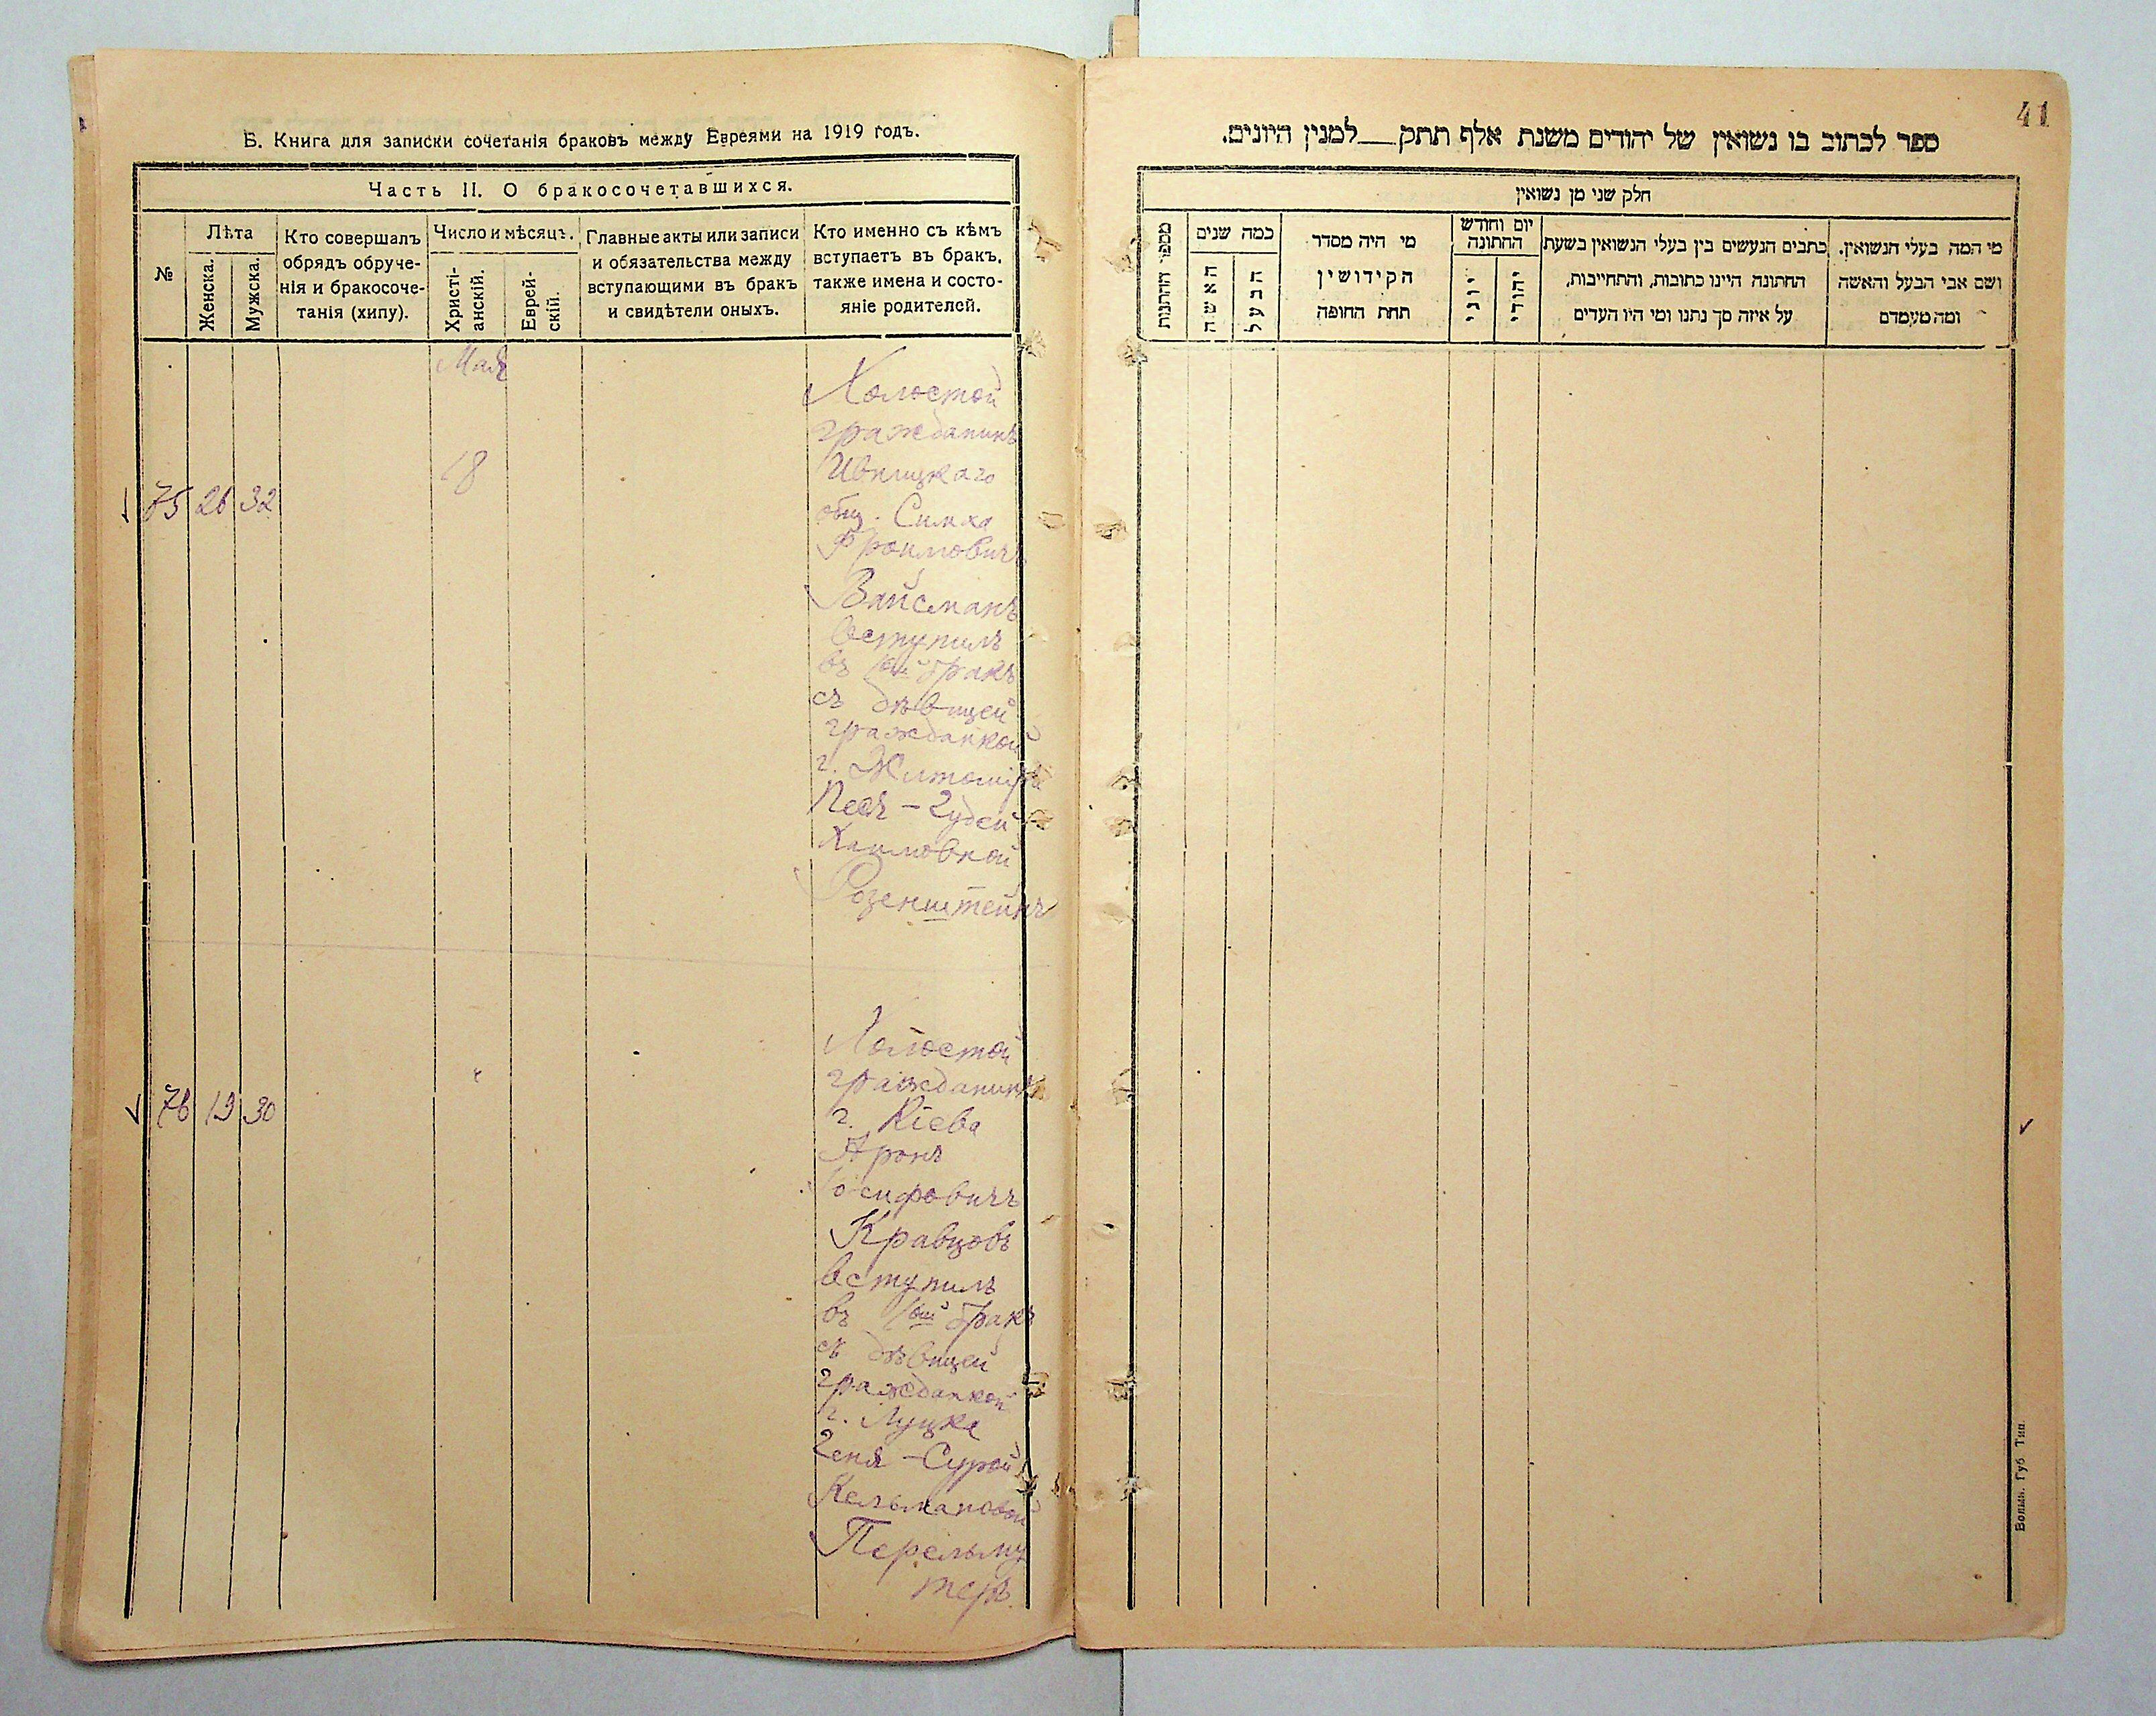 Б. Книга для записки сочетанія браковъ между Евреями на 1919 годъ.
Часть II. О бракосочетавшихся.
№
Лѣта
Женска.
Мужска.
Кто совершалъ
обрядъ обруче-
нія и бракосоче-
танія (хипу).
Число и мѣсяцъ.
Христі-
анскій.
Еврей-
скій.
Главные акты или записи
и обязательства между
вступающими въ бракъ
и свидѣтели оныхъ.
Кто именно съ кѣмъ
вступаетъ въ бракъ,
также имена и состо-
яніе родителей.
75 26 32
Мая
18
Холостой
гражданинъ
Ивницкаго
общ. Симха
Фроимовичъ
Вайсманъ
вступилъ
въ 1ый бракъ
съ дѣвицей
гражданкой
г. Житоміра
Песя-Гудей
Хаимовной
Розенштейнъ
76 19 30
"
Холостой
гражданинъ
г. Кіева
Аронъ
Іосифовичъ
Кравцовъ
вступилъ
въ 1ый бракъ
съ дѣвицей
гражданкой
г. Луцка
Геня-Сурой
Кельмановой
Перельму
теръ
41
ספר לכתוב בו נשואין של יהודים משנת אלף תתק__למנין היונים.
חלק שני מן נשואין
מי המה בעלי הנשואין.
ושם אבי הבעל והאשה
ומה מעמדם
כתבים הנעשים בין בעלי הנשואין בשעת
החתונה היינו כתובות, והתחייבות,
על איזה סך נתנו ומי היו העדים
יום וחודש
החתונה
יהודי
יוני
מי היה מסדר
הקידושין
תחת החופה
כמה שנים
הבעל
האשה
מספר החתונות
Волын. Губ Тип.